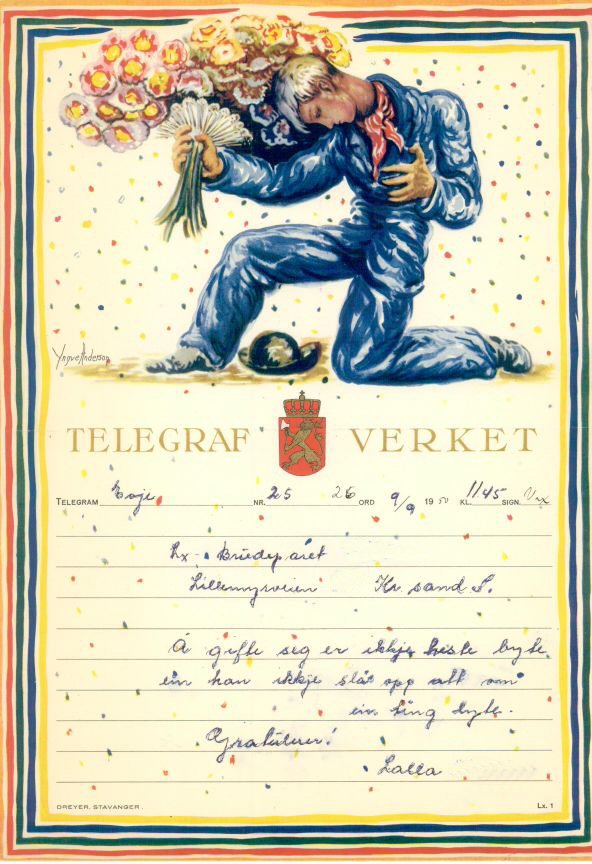 Yngve Anderson
TELEGRAF VERKET
TELEGRAM Evje NR. 25 26 ORD 9/9 1950 KL. 1145 SIGN.
Lx - Brudeparet
Lillemyrveien Kr. sand S.
Å gifte seg er ikkje heste byte
ein kan ikkje slå opp att om
ein ting lyte.
Gratulerer!
Lalla
DREYER, STAVANGER.
Lx. 1